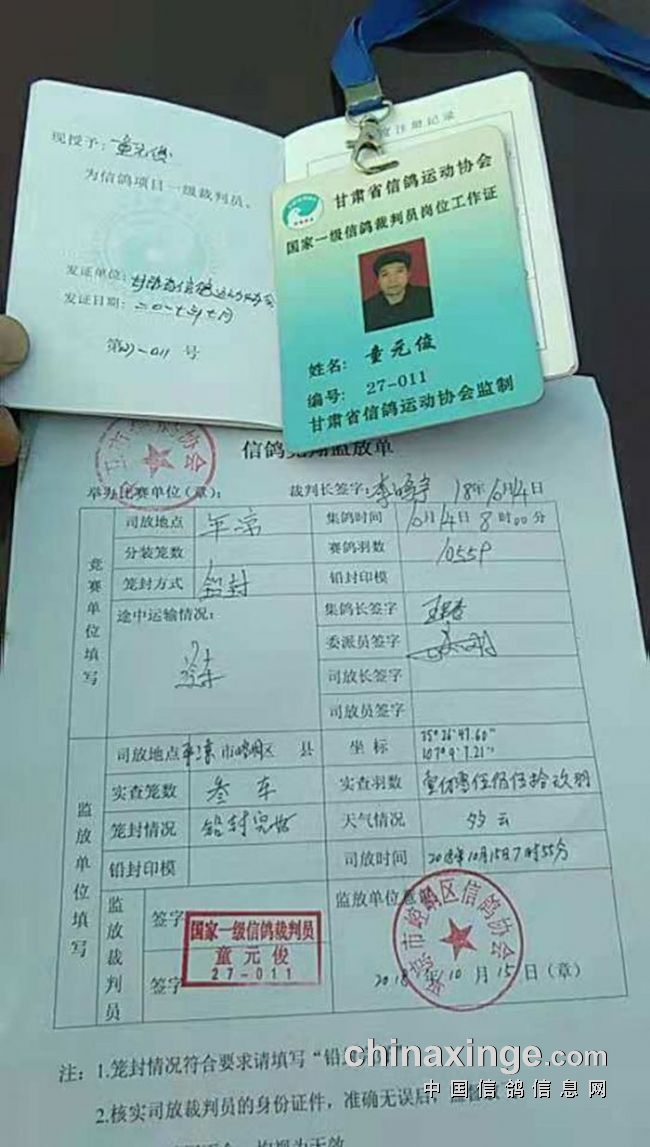 现授予：童元俊
为信鸽项目一级裁判员。
发证单位：甘肃省信鸽运动协会
发证日期：二〇一七年七月
第27-011号
注册记录
甘肃省信鸽运动协会
国家一级信鸽裁判员岗位工作证
姓名：童元俊
编号：27-011
甘肃省信鸽运动协会监制
信鸽竞翔监放单
举办比赛单位（章）：
裁判长签字： 18年10月14日
竞赛单位填写
司放地点 平凉 集鸽时间 10月14日8时00分
分装笼数 赛鸽羽数 10559
笼封方式 铅封 铅封印模
途中运输情况： 集鸽长签字
汽车 委派员签字
司放长签字
司放员签字
监放单位填写
司放地点 平凉市崆峒区 县 坐标 35°26'47.60" 107°9'7.21"
实查笼数 叁车 实查羽数
笼封情况 铅封完好 天气情况 多云
铅封印模 司放时间 2018年10月15日7时55分
监放裁判员 签字 监放单位意见
国家一级信鸽裁判员
童元俊
27-011
平凉市崆峒区信鸽协会
签字 2018年10月15日（章）
注：1.笼封情况符合要求请填写“铅
2.核实司放裁判员的身份证件，准确无误后，
均视为无效
chinaxinge.com
中国信鸽信息网